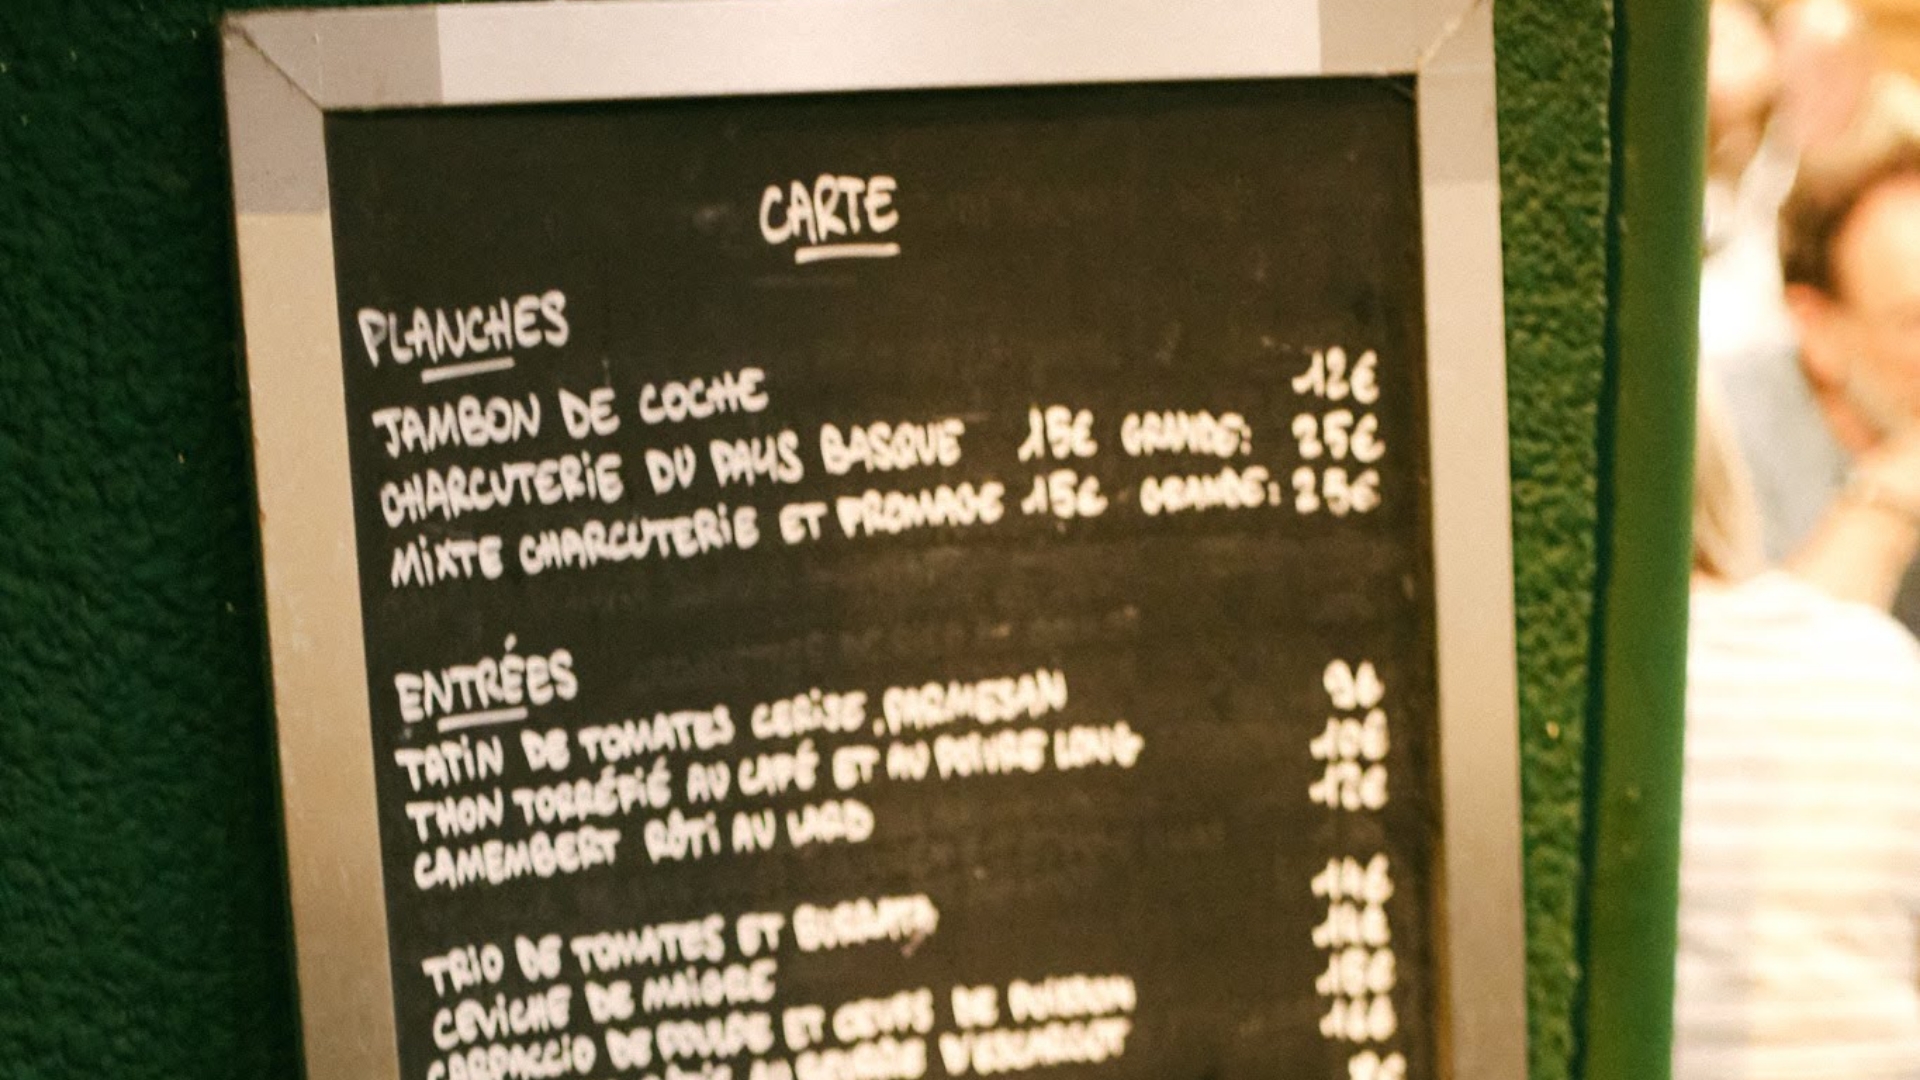 CARTE
PLANCHES
JAMBON DE COCHE 12€
CHARCUTERIE DU PAYS BASQUE 15€ GRANDE: 25€
MIXTE CHARCUTERIE ET FROMAGE 15€ GRANDE: 25€
ENTRÉES
TATIN DE TOMATES CERISE, PARMESAN 9€
THON TORRÉFIÉ AU CAFÉ ET AU POIVRE LONG 10€
CAMEMBERT RÔTI AU LARD 12€
TRIO DE TOMATES ET BURRATA
CEVICHE DE MAIGRE
CARPACCIO DE POULPE ET OEUFS DE POISSON
AU BEURRE D'ESCARGOT